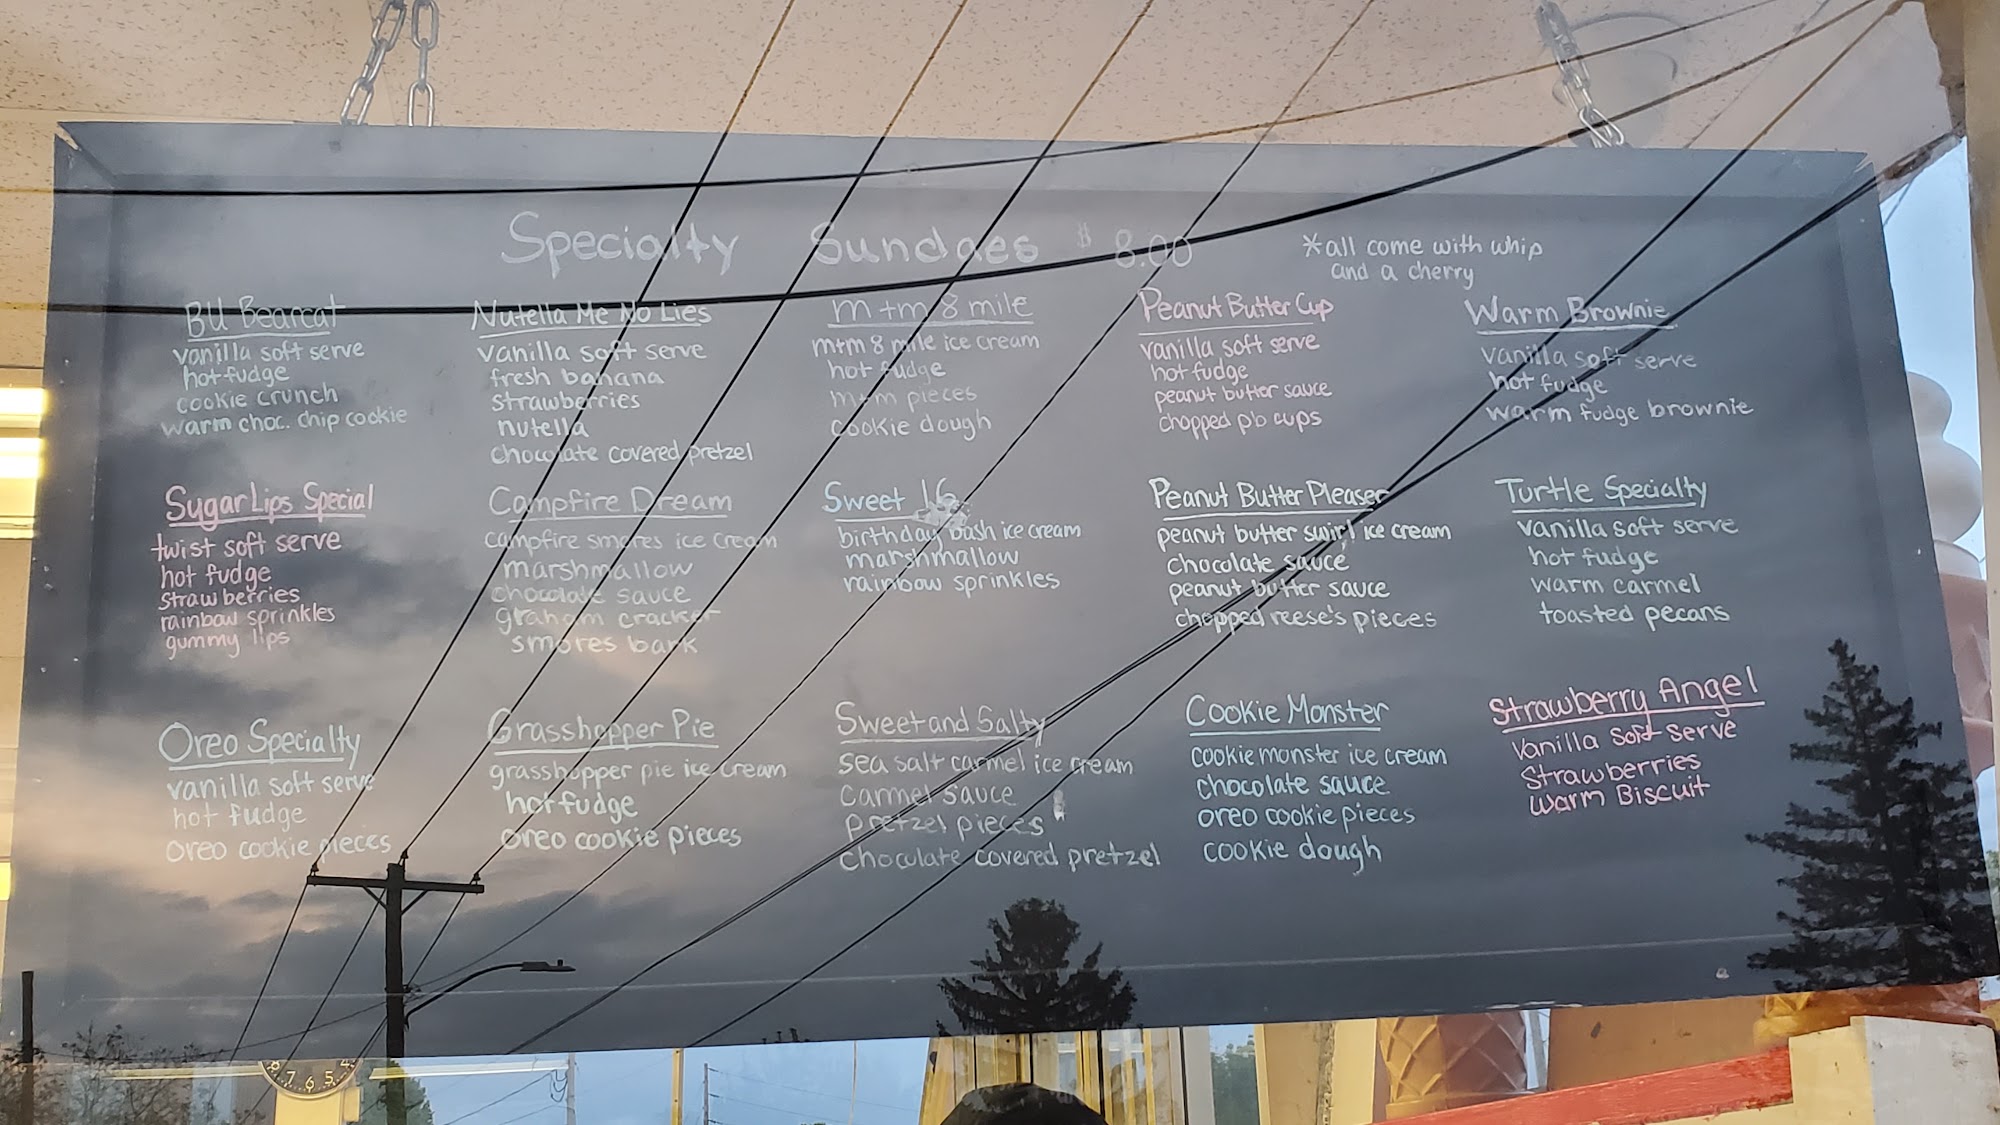 Specialty Sundaes $ 8.00
*all come with whip
and a cherry
BU Bearcat
vanilla soft serve
hot fudge
cookie crunch
warm choc. chip cookie
Nutella Me No Lies
vanilla soft serve
fresh banana
strawberries
nutella
chocolate covered pretzel
m+m 8 mile
m+m 8 mile ice cream
hot fudge
m+m pieces
cookie dough
Peanut Butter Cup
vanilla soft serve
hot fudge
peanut butter sauce
chopped pb cups
Warm Brownie
vanilla soft serve
hot fudge
warm fudge brownie
Sugar Lips Special
twist soft serve
hot fudge
strawberries
rainbow sprinkles
gummy lips
Campfire Dream
campfire smores ice cream
marshmallow
chocolate sauce
graham cracker
smores bark
Sweet 16
birthday bash ice cream
marshmallow
rainbow sprinkles
Peanut Butter Pleaser
peanut butter swirl ice cream
chocolate sauce
peanut butter sauce
chopped reese's pieces
Turtle Specialty
vanilla soft serve
hot fudge
warm carmel
toasted pecans
Oreo Specialty
vanilla soft serve
hot fudge
oreo cookie pieces
Grasshopper Pie
grasshopper pie ice cream
hot fudge
oreo cookie pieces
Sweet and Salty
sea salt carmel ice cream
carmel sauce
pretzel pieces
chocolate covered pretzel
Cookie Monster
cookie monster ice cream
chocolate sauce
oreo cookie pieces
cookie dough
Strawberry Angel
Vanilla soft serve
Strawberries
Warm Biscuit
8 7 6 5 4